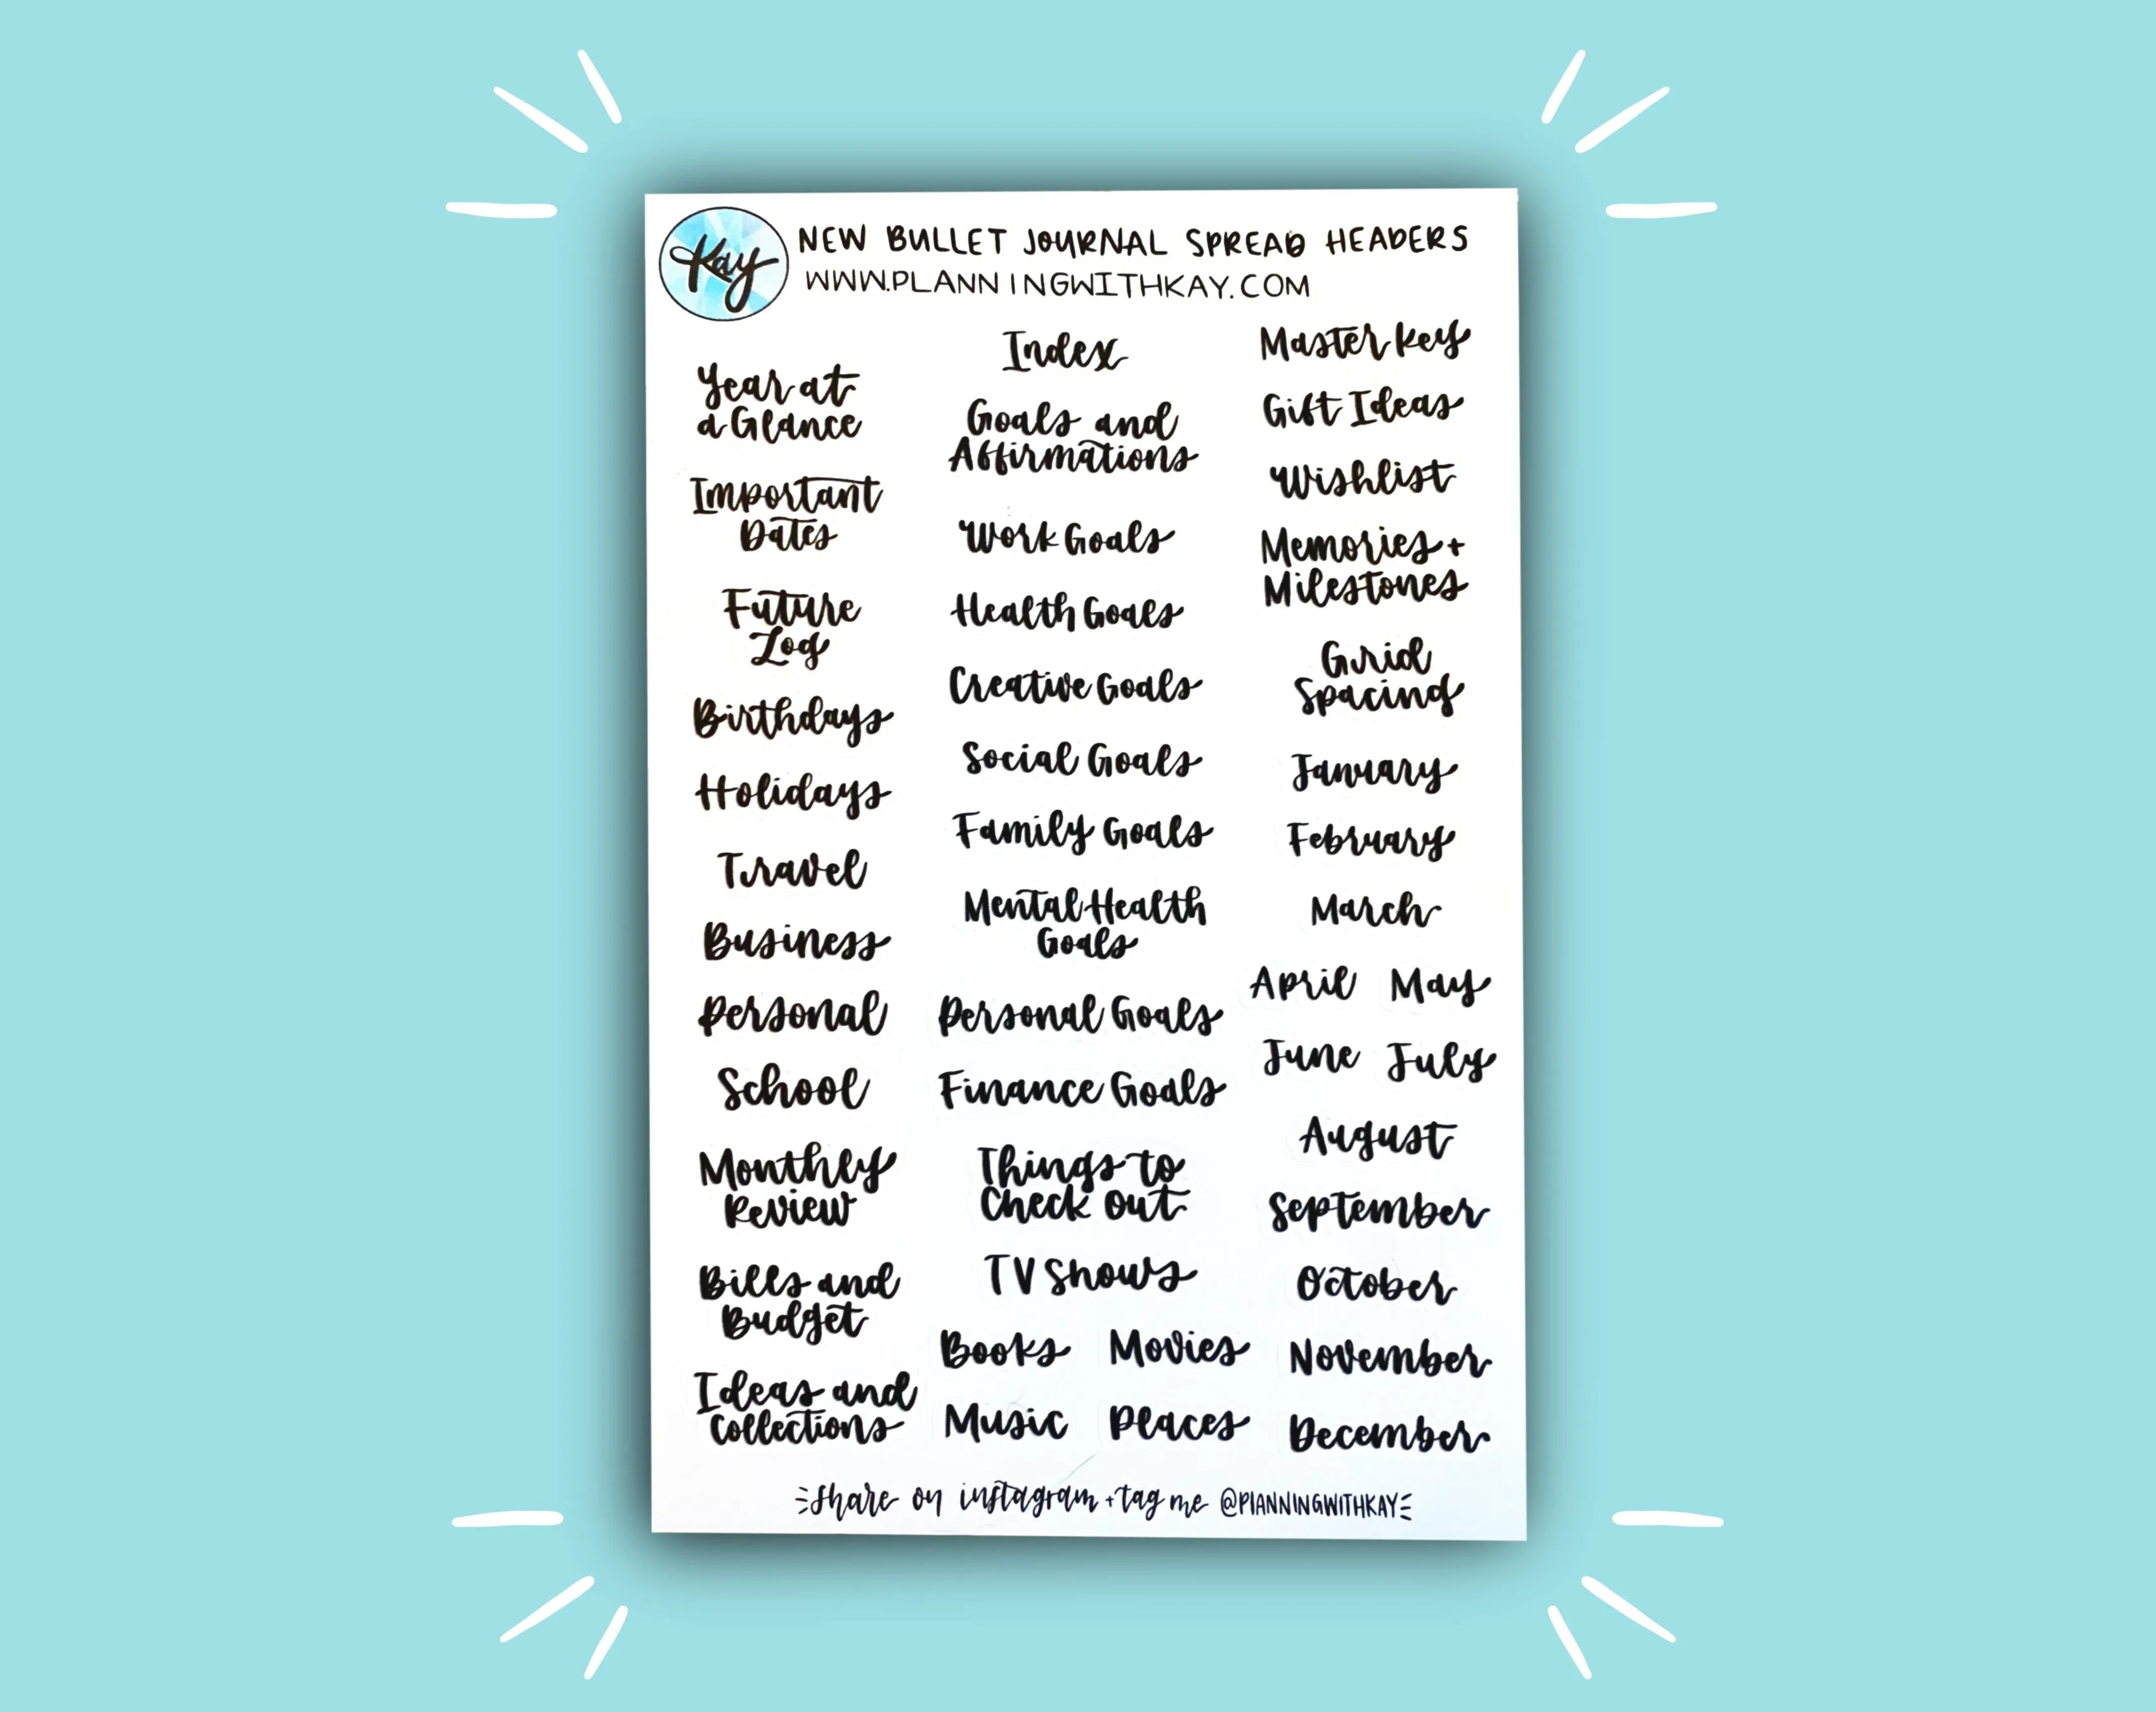 Kay
NEW BULLET JOURNAL SPREAD HEADERS
WWW.PLANNINGWITHKAY.COM
Year at
a Glance
Important
Dates
Future
Log
Birthdays
Holidays
Travel
Business
Personal
School
Monthly
Review
Bills and
Budget
Ideas and
Collections
Index
Goals and
Affirmations
Work Goals
Health Goals
Creative Goals
Social Goals
Family Goals
Mental Health
Goals
Personal Goals
Finance Goals
Things to
Check out
TV Shows
Books Movies
Music Places
Master Key
Gift Ideas
Wishlist
Memories +
Milestones
Grid
Spacing
January
February
March
April May
June July
August
September
October
November
December
share on instagram + tag me @PLANNINGWITHKAY